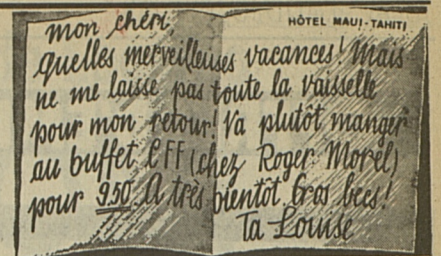 mon chéri,
HÔTEL MAUI-TAHITI
quelles merveilleuses vacances! Mais
ne me laisse pas toute la vaisselle
pour mon retour! Va plutôt manger
au buffet CFF (chez Roger Morel)
pour 9.50. A très bientôt. Gros becs!
Ta Louise